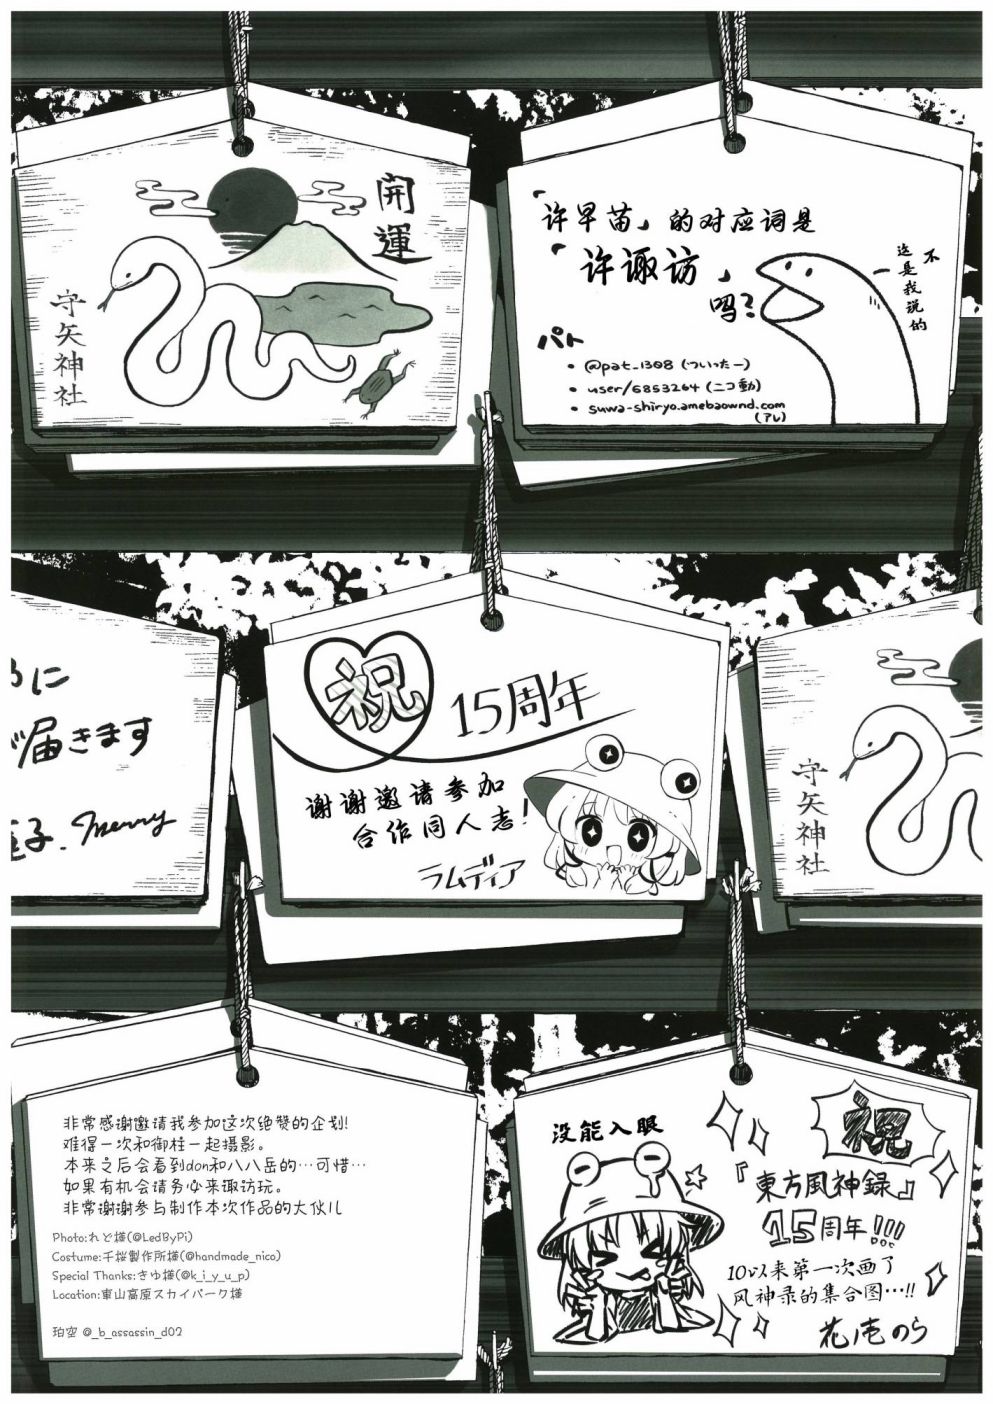 開運
守矢神社
「许早苗」的对应词是
「许诹访」
吗?
不
这是我说的
パト
• @pat_1308 (ついったー)
• user/6853264 (ニコ動)
• suwa-shiryo.amebaownd.com
(アレ)
に
届きます
子. Merry
祝
15周年
谢谢邀请参加
合作同人志!
ラムディア
守矢神社
非常感谢邀请我参加这次绝赞的企划!
难得一次和御柱一起摄影。
本来之后会看到don和八八岳的…可惜…
如果有机会请务必来诹访玩。
非常谢谢参与制作本次作品的大伙儿
Photo:れど様(@LedByPi)
Costume:千桜製作所様(@handmade_nico)
Special Thanks:きゆ様(@k_i_y_u_p)
Location:東山高原スカイパーク様
珀空 @_b_assassin_d02
没能入眠
祝
『東方風神録』
15周年!!!
10以来第一次画了
风神录的集合图…!!
花壱のら